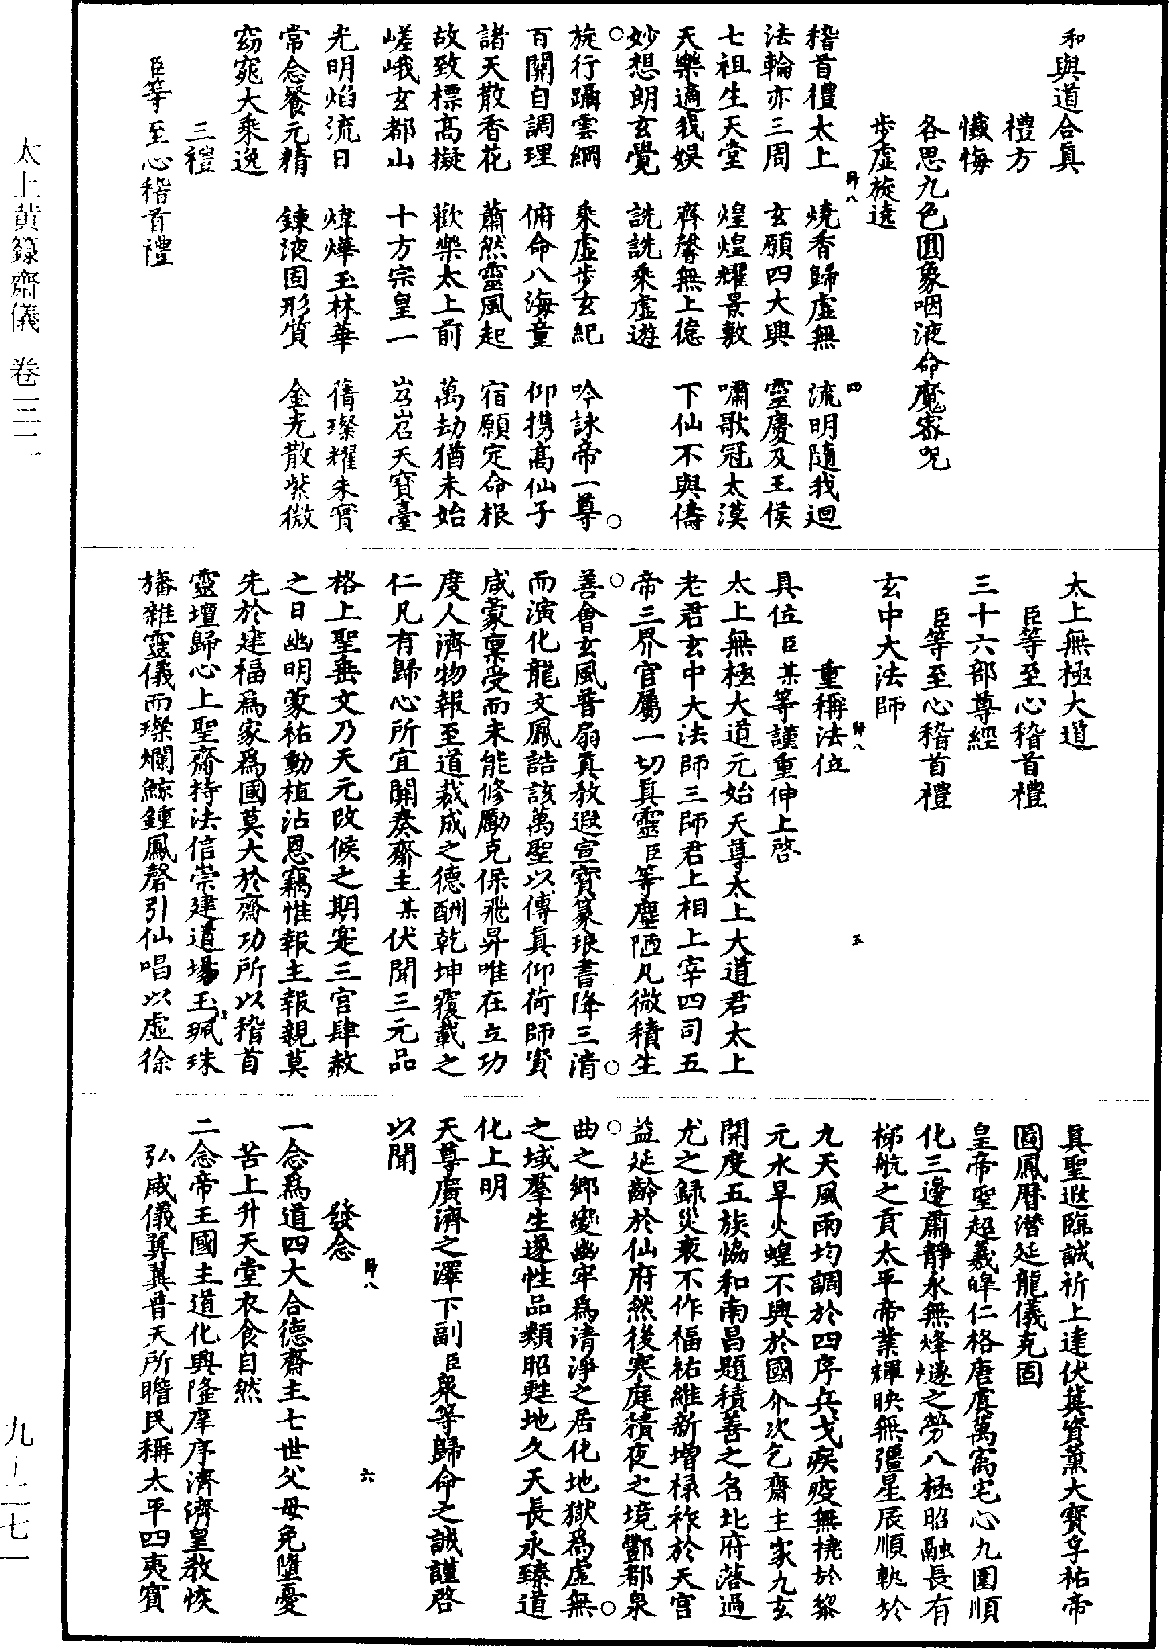 和與道合真
禮方
懺悔
各思九色圓象咽液命魔密呪
步虛旋遶
稽首禮太上　燒香歸虛無　流明隨我迴
法輪亦三周　玄願四大興　靈慶及王侯
七祖生天堂　煌煌耀景敷　嘯歌冠太漠
天樂適我娛　齊馨無上德　下仙不與儔
妙想朗玄覺　詵詵乘虛遊
旋行躡雲綱　乘虛步玄紀　吟詠帝一尊
百關自調理　俯命八海童　仰携高仙子
諸天散香花　蕭然靈風起　宿願定命根
故致標高擬　歡樂太上前　萬劫猶未始
嵯峨玄都山　十方宗皇一　岧岧天寶臺
光明焰流日　煒燁玉林華　蒨璨耀朱實
常念餐元精　鍊液固形質　金光散紫微
窈窕大乘逸
三禮
臣等至心稽首禮
太上無極大道
臣等至心稽首禮
三十六部尊經
臣等至心稽首禮
玄中大法師
重稱法位
具位臣某等謹重伸上啓
太上無極大道元始天尊太上大道君太上
老君玄中大法師三師君上相上宰四司五
帝三界官屬一切真靈臣等塵陋凡微積生
善會玄風普扇真教遐宣寶篆琅書降三清
而演化龍文鳳誥該萬聖以傳真仰荷師資
咸蒙稟受而未能修勵克保飛昇唯在立功
度人濟物報至道裁成之德酬乾坤覆載之
仁凡有歸心所宜關奏齋主某伏聞三元品
格上聖垂文乃天元改候之期寔三官肆赦
之日幽明蒙祐動植沾恩竊惟報主報親莫
先於建福爲家爲國莫大於齋功所以稽首
靈壇歸心上聖齋持法信崇建道場玉珮珠
旛雜靈儀而璨爛鯨鍾鳳磬引仙唱以虛徐
真聖遐臨誠祈上達伏冀資薰大寶孚祐帝
圖鳳曆潛延龍儀克固
皇帝聖超羲皡仁格唐虞萬寓宅心九圍順
化三邊肅靜永無烽燧之勞八極昭融長有
梯航之貢太平帝業輝映無彊星辰順軌於
九天風雨均調於四序兵戈疾疫無撓於黎
元水旱火蝗不興於國尒次乞齋主家九玄
開度五族恊和南昌題積善之名北府落過
尤之録災衰不作福祐維新增禄祚於天官
益延齡於仙府然後寒庭積夜之境酆都泉
曲之鄉變幽牢爲清淨之居化地獄爲虛無
之域羣生遂性品類昭甦地久天長永臻道
化上明
天尊廣濟之澤下副臣衆等歸命之誠謹啓
以聞
發念
一念爲道四大合德齋主七世父母免墮憂
苦上升天堂衣食自然
二念帝王國主道化興隆庠序濟濟皇教恢
弘威儀翼翼普天所瞻民稱太平四夷賓
歸八
四
歸八
五
歸八
六
太上黃籙齋儀　卷三二
九—二七一